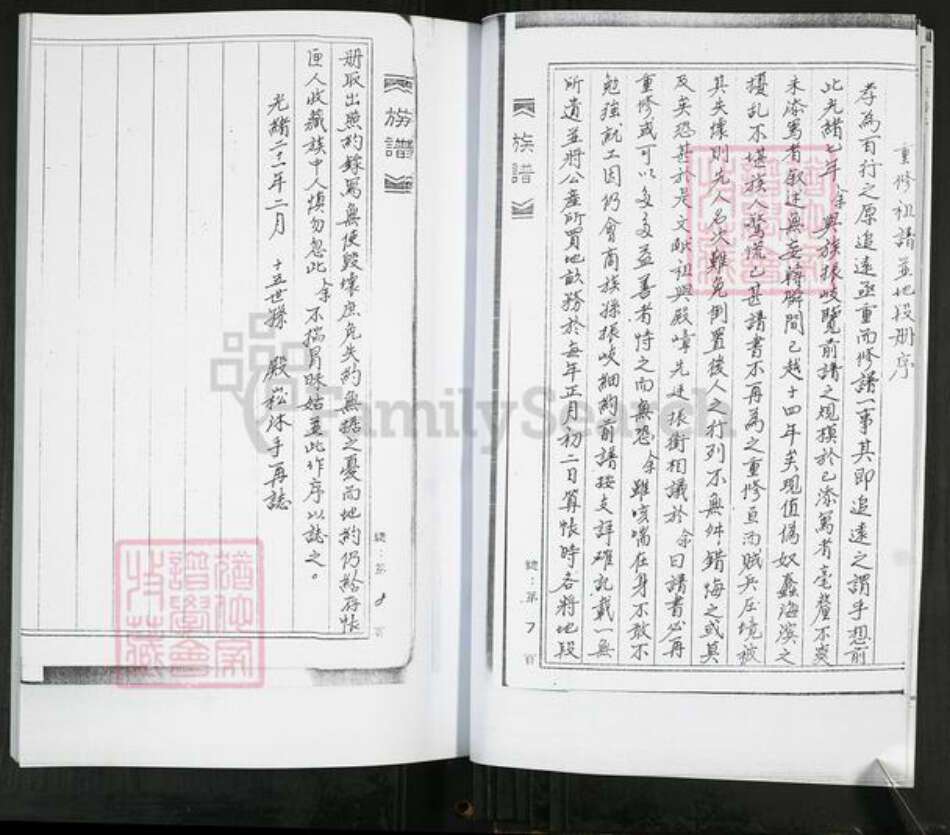 重修祖譜並地段册序
孝為百行之原追遠亟重而修譜一事其即追遠之謂乎想前
此光緒己年余與族振岐覽前譜之規模於已添篤者毫釐不爽
未添篤者叙述無妄轉瞬間已越十四年矣現值偽奴蠢海濱之
擾乱不堪族人驚慌已甚譜書不再為之重修亘而賊兵压境被
其失壞則先人名次難免倒置後人之行列不無舛錯悔之或莫
及矣恐甚於是文献祖與殿嶂先进振衡相議於余曰譜書必再
重修或可以多多益善者恃之而無恐余雖咳喘在身不敢不
勉強就工因仍會商族孫振岐細約前譜按支詳確記載一無
所遺並將公產所買地畝務於每年正月初二日算帳時各將地段
族譜
總:第 7 頁
册取出照約錄寫無使毀壞庶免失約無據之憂而地約仍給存帳
匣人收藏族中人慎勿忽此余不揣冒昧姑並此作序以誌之。
光緒二十一年二月 十五世孫 殿松沐手再誌
族譜
總:第 8 頁
FamilySearch